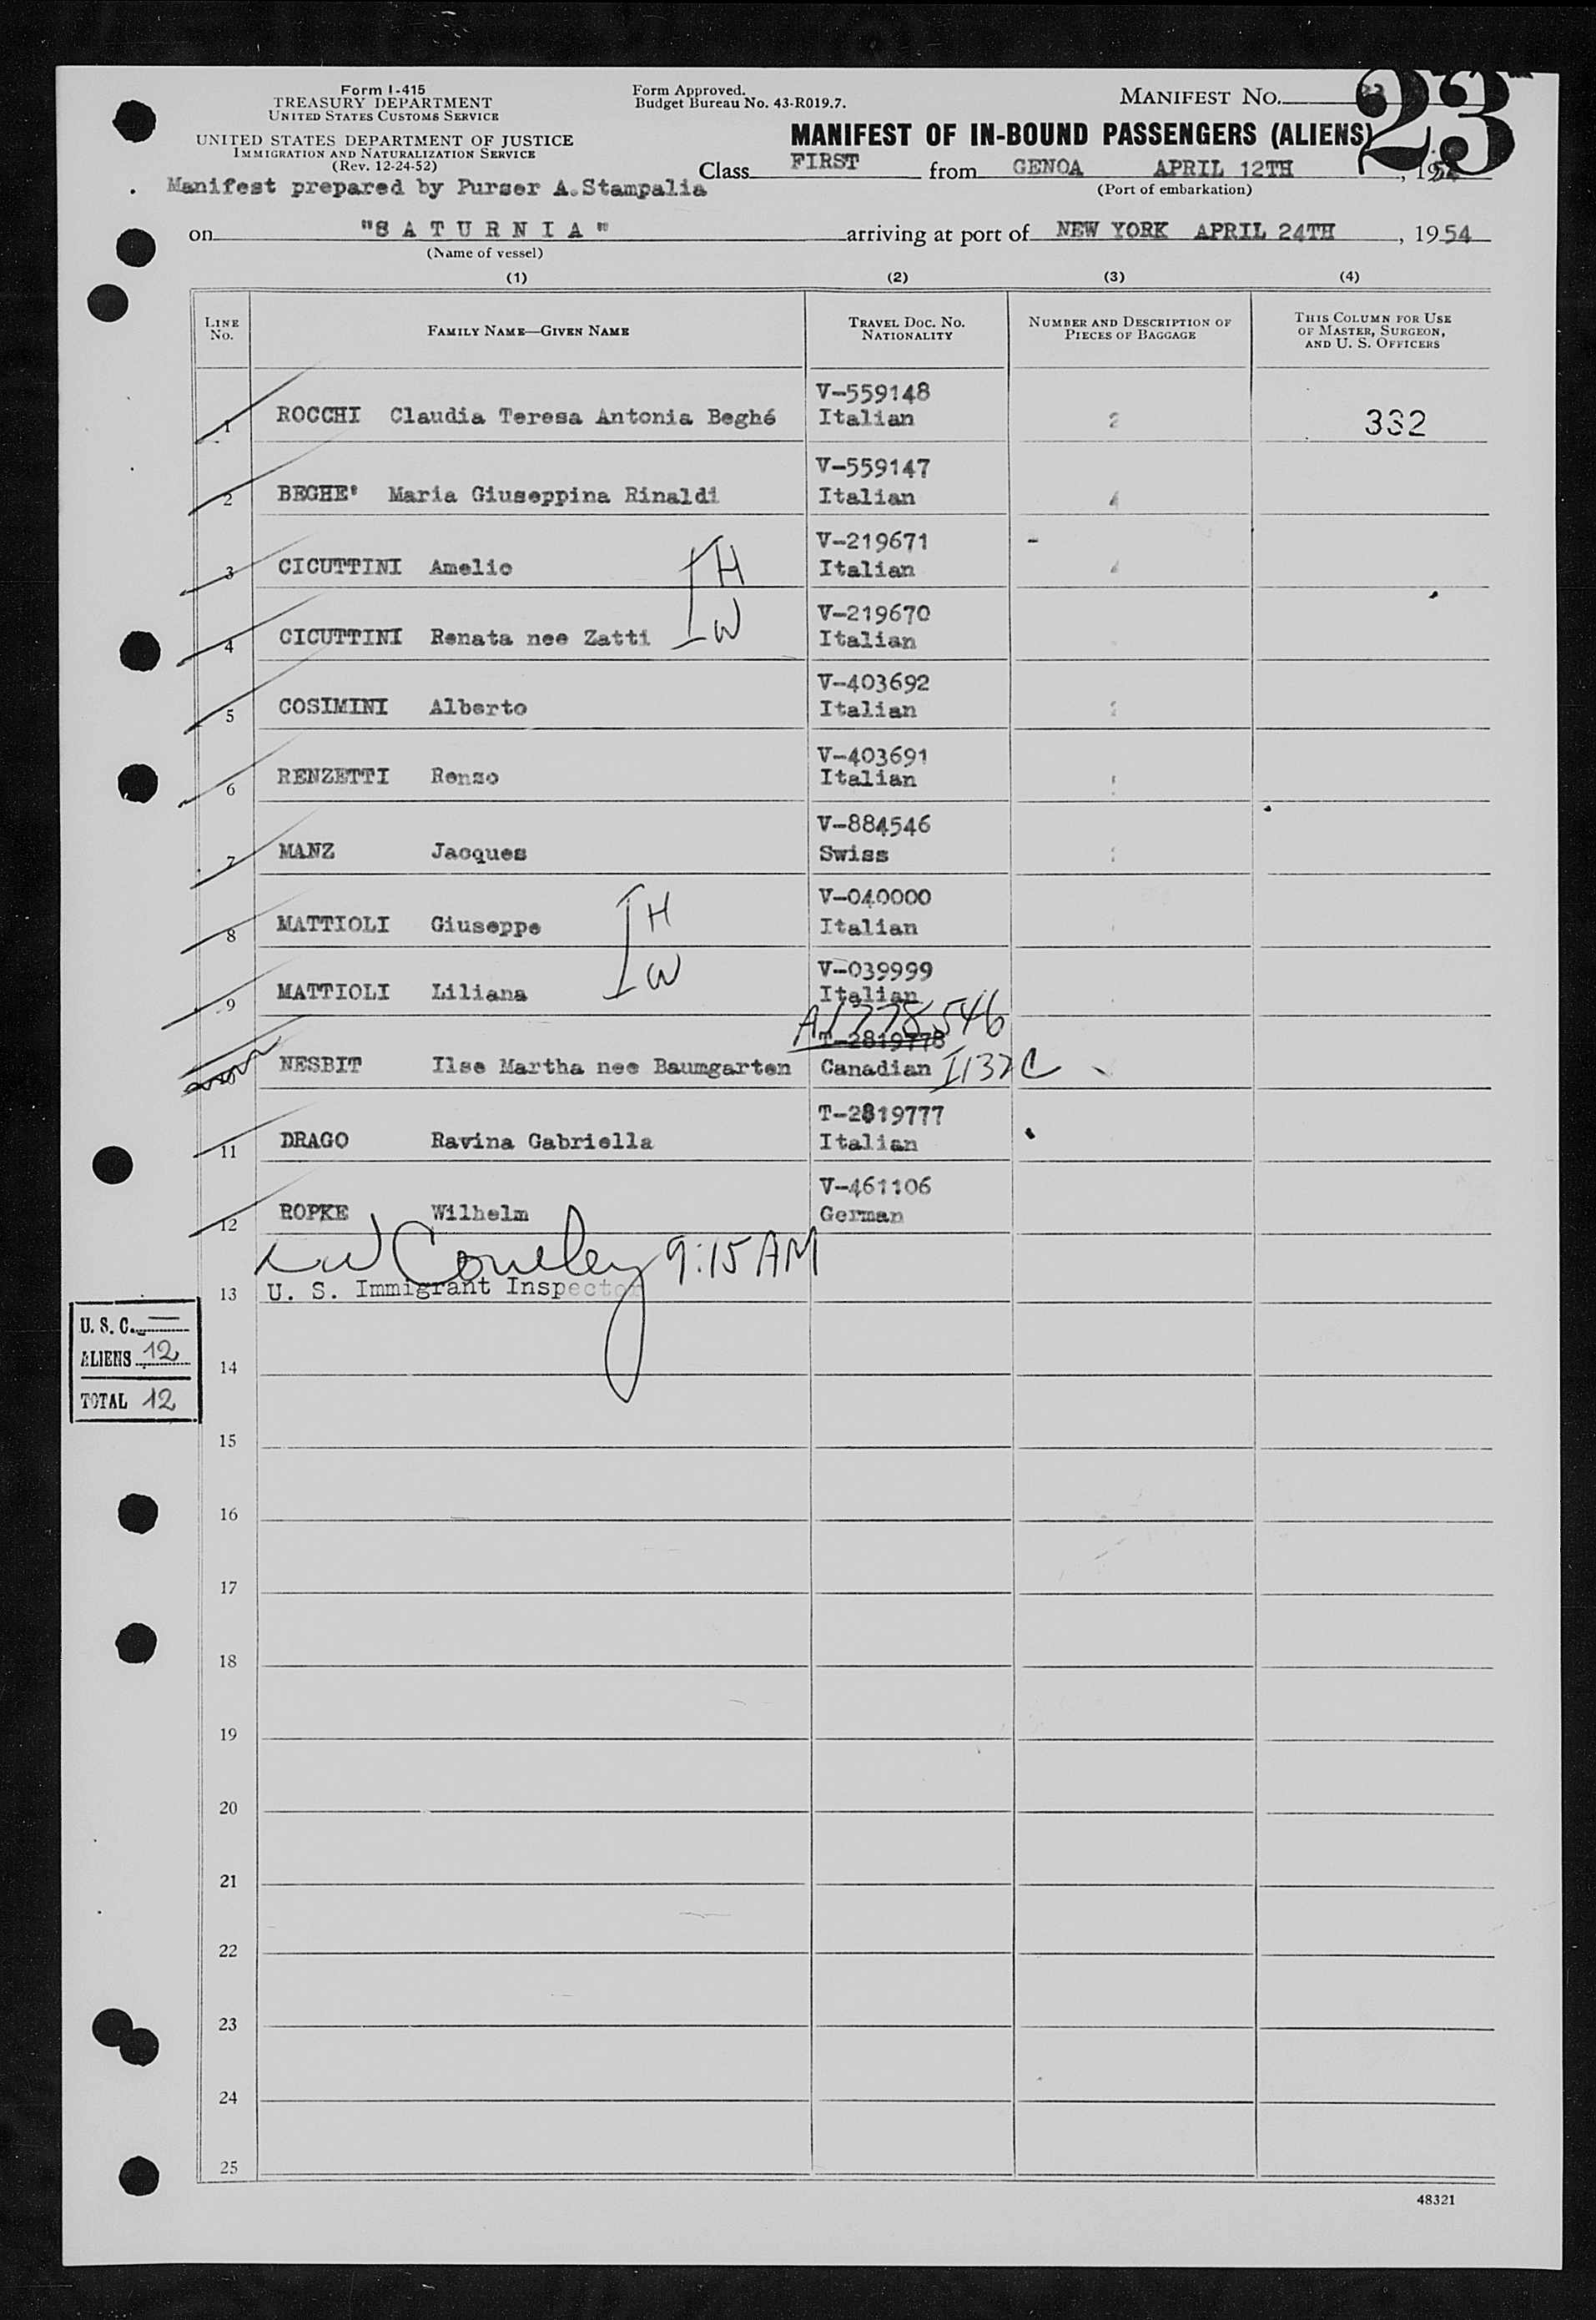 Form I-415
TREASURY DEPARTMENT
UNITED STATES CUSTOMS SERVICE
UNITED STATES DEPARTMENT OF JUSTICE
IMMIGRATION AND NATURALIZATION SERVICE
(Rev. 12-24-52)
Form Approved.
Budget Bureau No. 43-R019.7.
MANIFEST NO. 23
MANIFEST OF IN-BOUND PASSENGERS (ALIENS)
Class FIRST from GENOA APRIL 12TH, 1954
(Port of embarkation)
Manifest prepared by Purser A.Stampalia
on "S A T U R N I A" arriving at port of NEW YORK APRIL 24TH, 1954
(Name of vessel)
(1) (2) (3) (4)
LINE No. FAMILY NAME—GIVEN NAME TRAVEL DOC. NO. NATIONALITY NUMBER AND DESCRIPTION OF PIECES OF BAGGAGE THIS COLUMN FOR USE OF MASTER, SURGEON, AND U. S. OFFICERS
V-559148
1 ROCCHI Claudia Teresa Antonia Beghé Italian 2 332
V-559147
2 BEGHE' Maria Giuseppina Rinaldi Italian 4
V-219671
3 CICUTTINI Amelio H Italian
V-219670
4 CICUTTINI Renata nee Zatti W Italian
V-403692
5 COSIMINI Alberto Italian
V-403691
6 RENZETTI Renzo Italian
V-884546
7 MANZ Jacques Swiss
V-040000
8 MATTIOLI Giuseppe H Italian
V-039999
9 MATTIOLI Liliana W Italian
A1778546
T-2819778
NESBIT Ilse Martha nee Baumgarten Canadian I132C
T-2819777
11 DRAGO Ravina Gabriella Italian
V-461106
12 ROPKE Wilhelm German
9:15 AM
13 U. S. Immigrant Inspector
U. S. C. —
ALIENS 12
TOTAL 12
14
15
16
17
18
19
20
21
22
23
24
25
48321